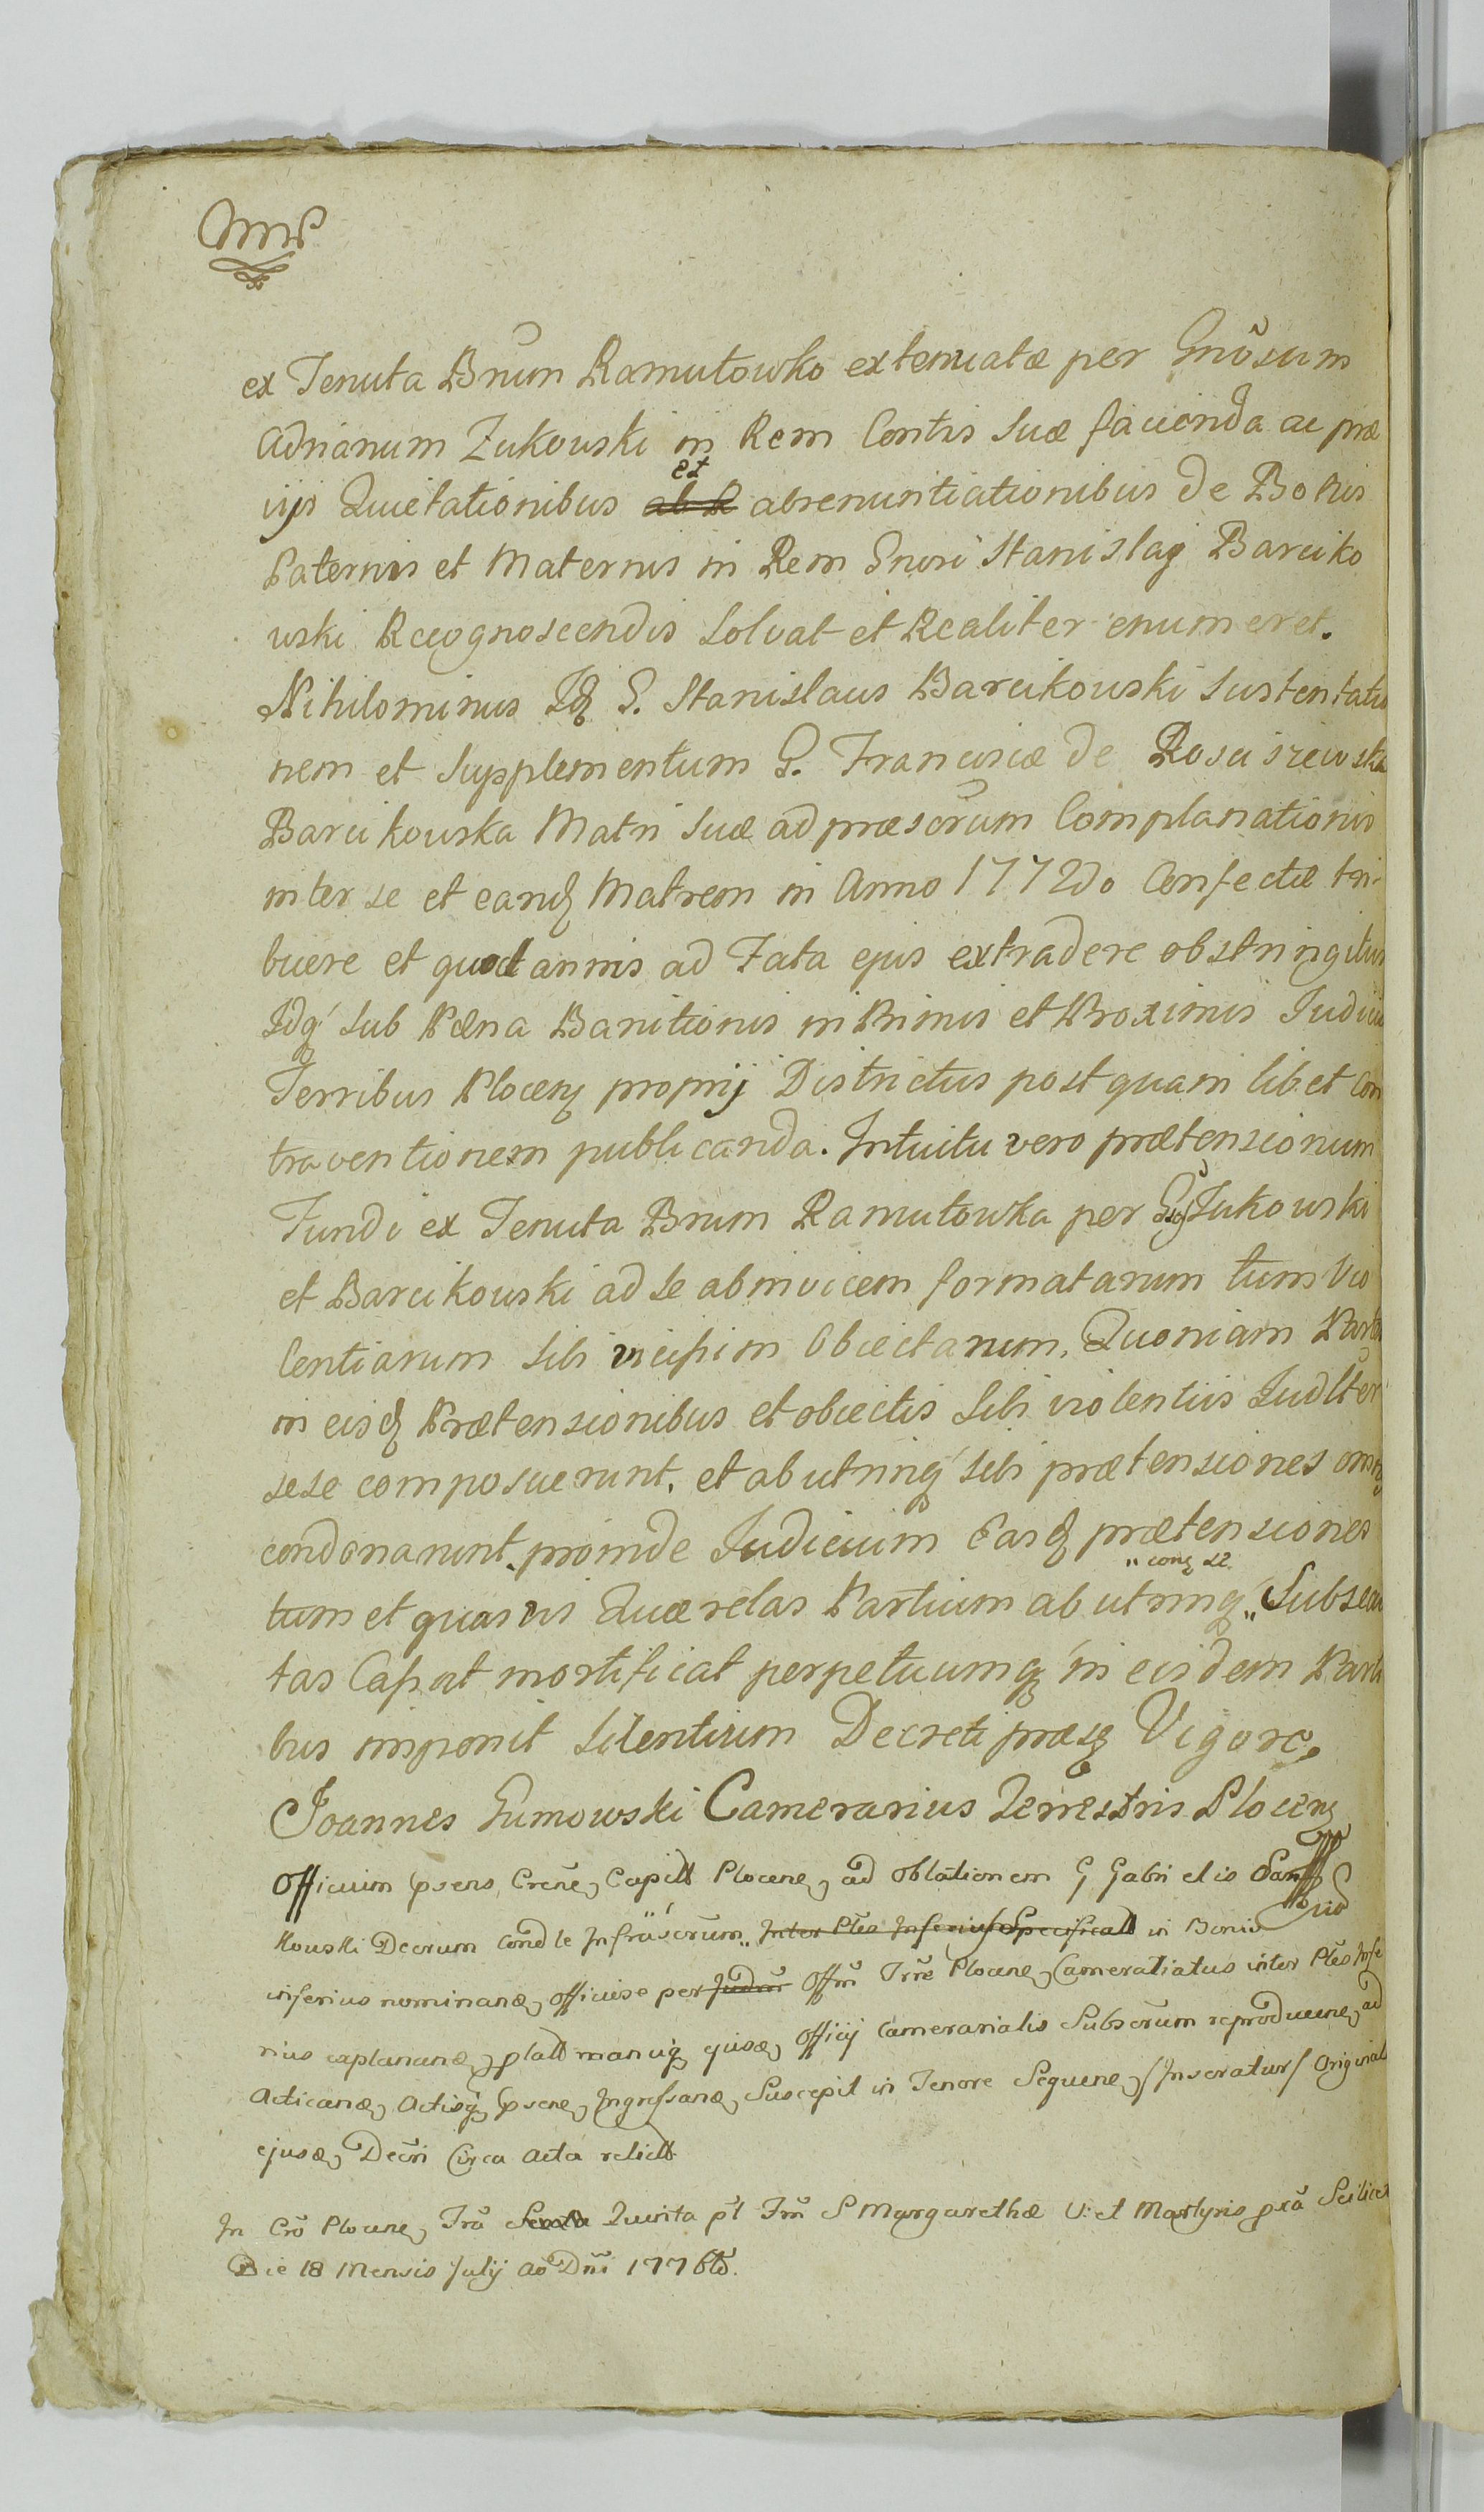 ex Tenuta Bnũm Ramutowko extenuatæ per Gnõsum
Adrianum Zukowski in Rem Contis suæ facienda ac præ
vijs Quietationibus ~~ab R~~ et abrenuntiationibus de Bonis
Paternis et Maternis in Rem Gnosi Stanislai Barciko
wski Recognoscendis Solvat et Realiter enumeret.
Nihilominus Idꝫ G. Stanislaus Barcikowski Sustentatio
nem et Supplementum G. Franciscæ de Rosciszewska
Barcikowska Matri suæ ad præscr̃um Complanationis
inter se et eandꝫ Matrem in Anno 1772do Confectæ tri-
buere et quotannis ad Fata ejus extradere obstringitur
Idqꝫ sub Pæna Banitionis in Primis et Proximis Judicijs
Terribus Plocenꝫ proprij Districtus post quam libet Con
traventionem publicanda. Intuitu vero prætensionum
Fundi ex Tenuta Bnum Ramutowka per Zukowski
et Barcikowski ad se ab invicem formatarum tum Vio
lentiarum sibi vicissim Obiectarum, Quoniam Partes
in eisdꝫ Prætensionibus et obiectis sibi violentiis Judlter
sese composuerunt, et ab utrinqꝫ sibi prætensiones omnes
condonarunt, proinde Judicium Easdꝫ prætensiones
tum et quasvis Quærelas Partium ab utrinqꝫ „ conꝫ se „ Subsecu
tas Cassat mortificat perpetuumqꝫ in eisdem Parti
bus imponit Silentium Decreti præsꝫ Vigore.
Joannes Gumowski Camerarius Terrestris Plocenꝫ
Officium psens Crẽnꝫ Capitt Plocenꝫ ad Oblationem G Gabrielis
kowski Decrum Cond le Infrascr̃um ~~Inter Ptes Inferius Specificatt~~ in Bonis
inferius nominanꝫ officiose per ~~Judm~~ Offm̃ Trr̃e Plocenꝫ Cameratiatus inter Ptes Infe
rius explananꝫ platt manuqꝫ ejusdꝫ Officij Camerarialis Subscr̃um reproducenꝫ ad
Acticandꝫ Actisqꝫ psenꝫ Ingrossandꝫ Suscepit in Tenore Sequenꝫ /Inseratur/ Originali
ejusdꝫ Decri Circa Acta relictt
In Crõ Plocenꝫ Frã ~~Sexta~~ Quinta pt Fm̃ S Margarethæ V: et Martyris pxã Scilicet
Die 18 Mensis Julij Ao Dñi 1776to.